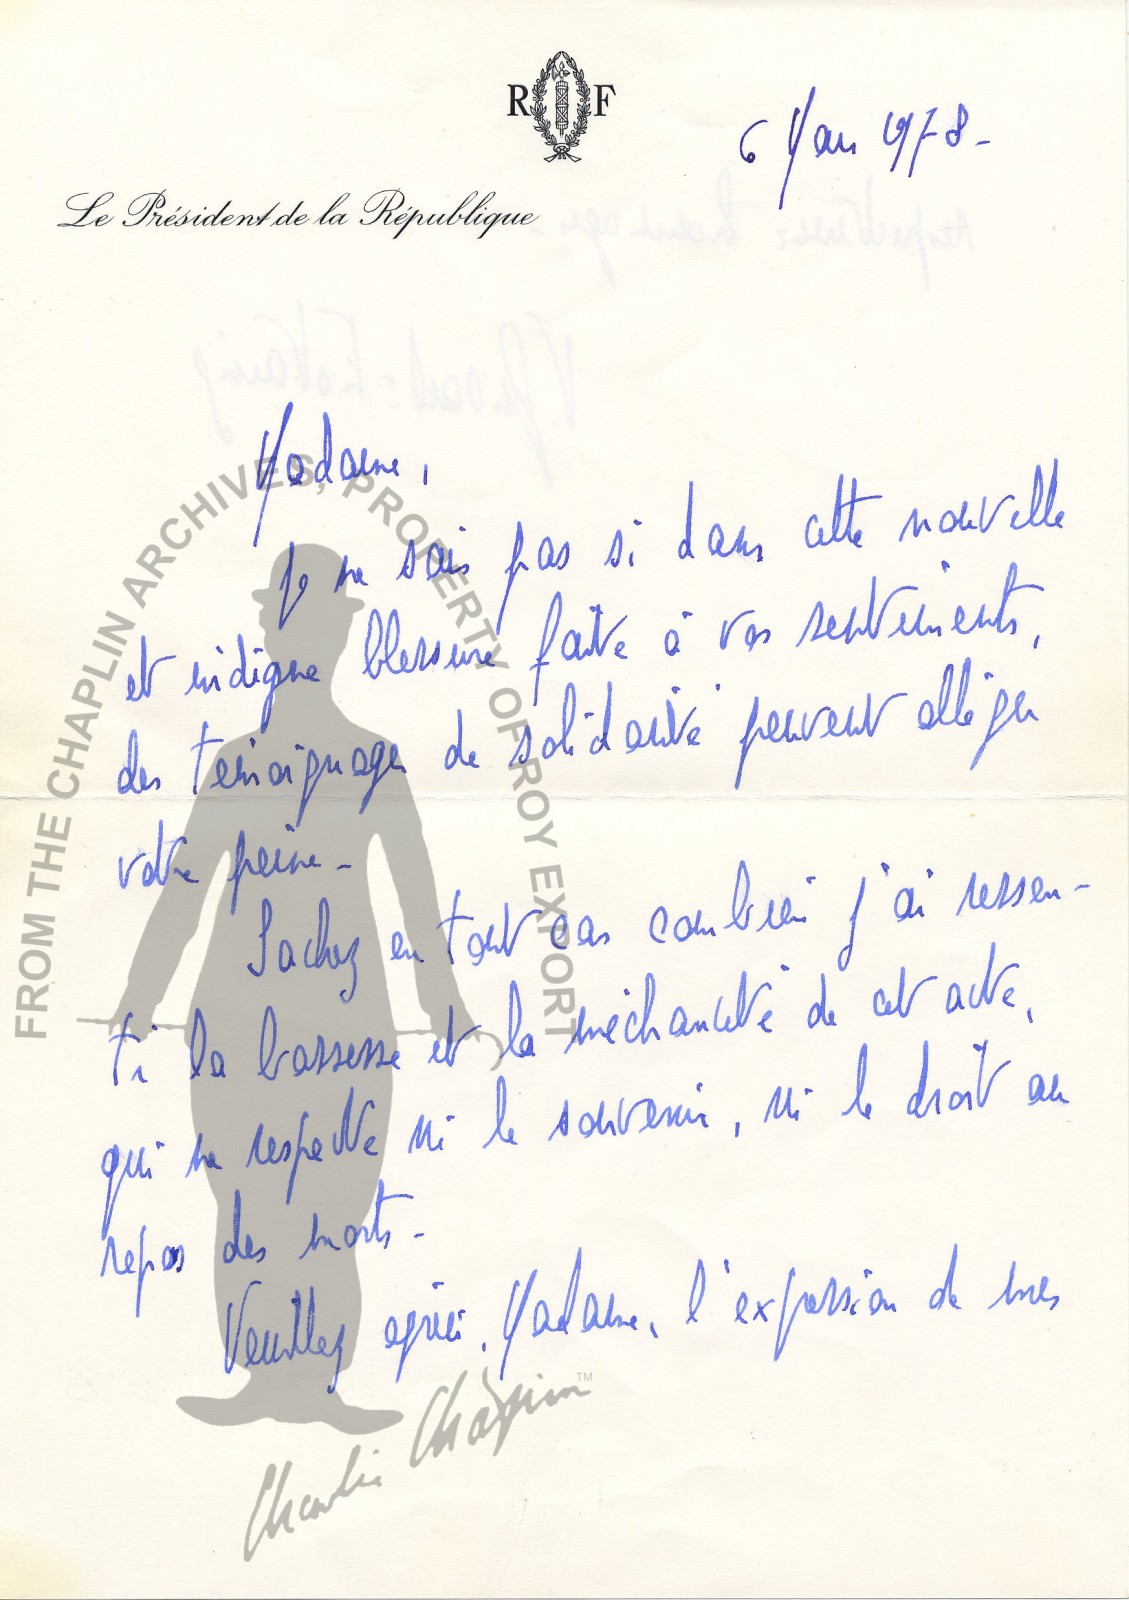 R F
6 Mars 1978-
Le Président de la République
Madame,
Je ne sais pas si dans cette nouvelle
et indigne blessure faite à vos sentiments,
des témoignages de solidarité peuvent alléger
votre peine-
Sachez en tout cas combien j'ai ressen-
ti la bassesse et la méchanceté de cet acte,
qui ne respecte ni le souvenir, ni le droit au
repos des morts-
Veuillez agréer, Madame, l'expression de mes
respectueux hommages-
V. Giscard d'Estaing
FROM THE CHAPLIN ARCHIVES, PROPERTY OF ROY EXPORT
Charlie Chaplin™